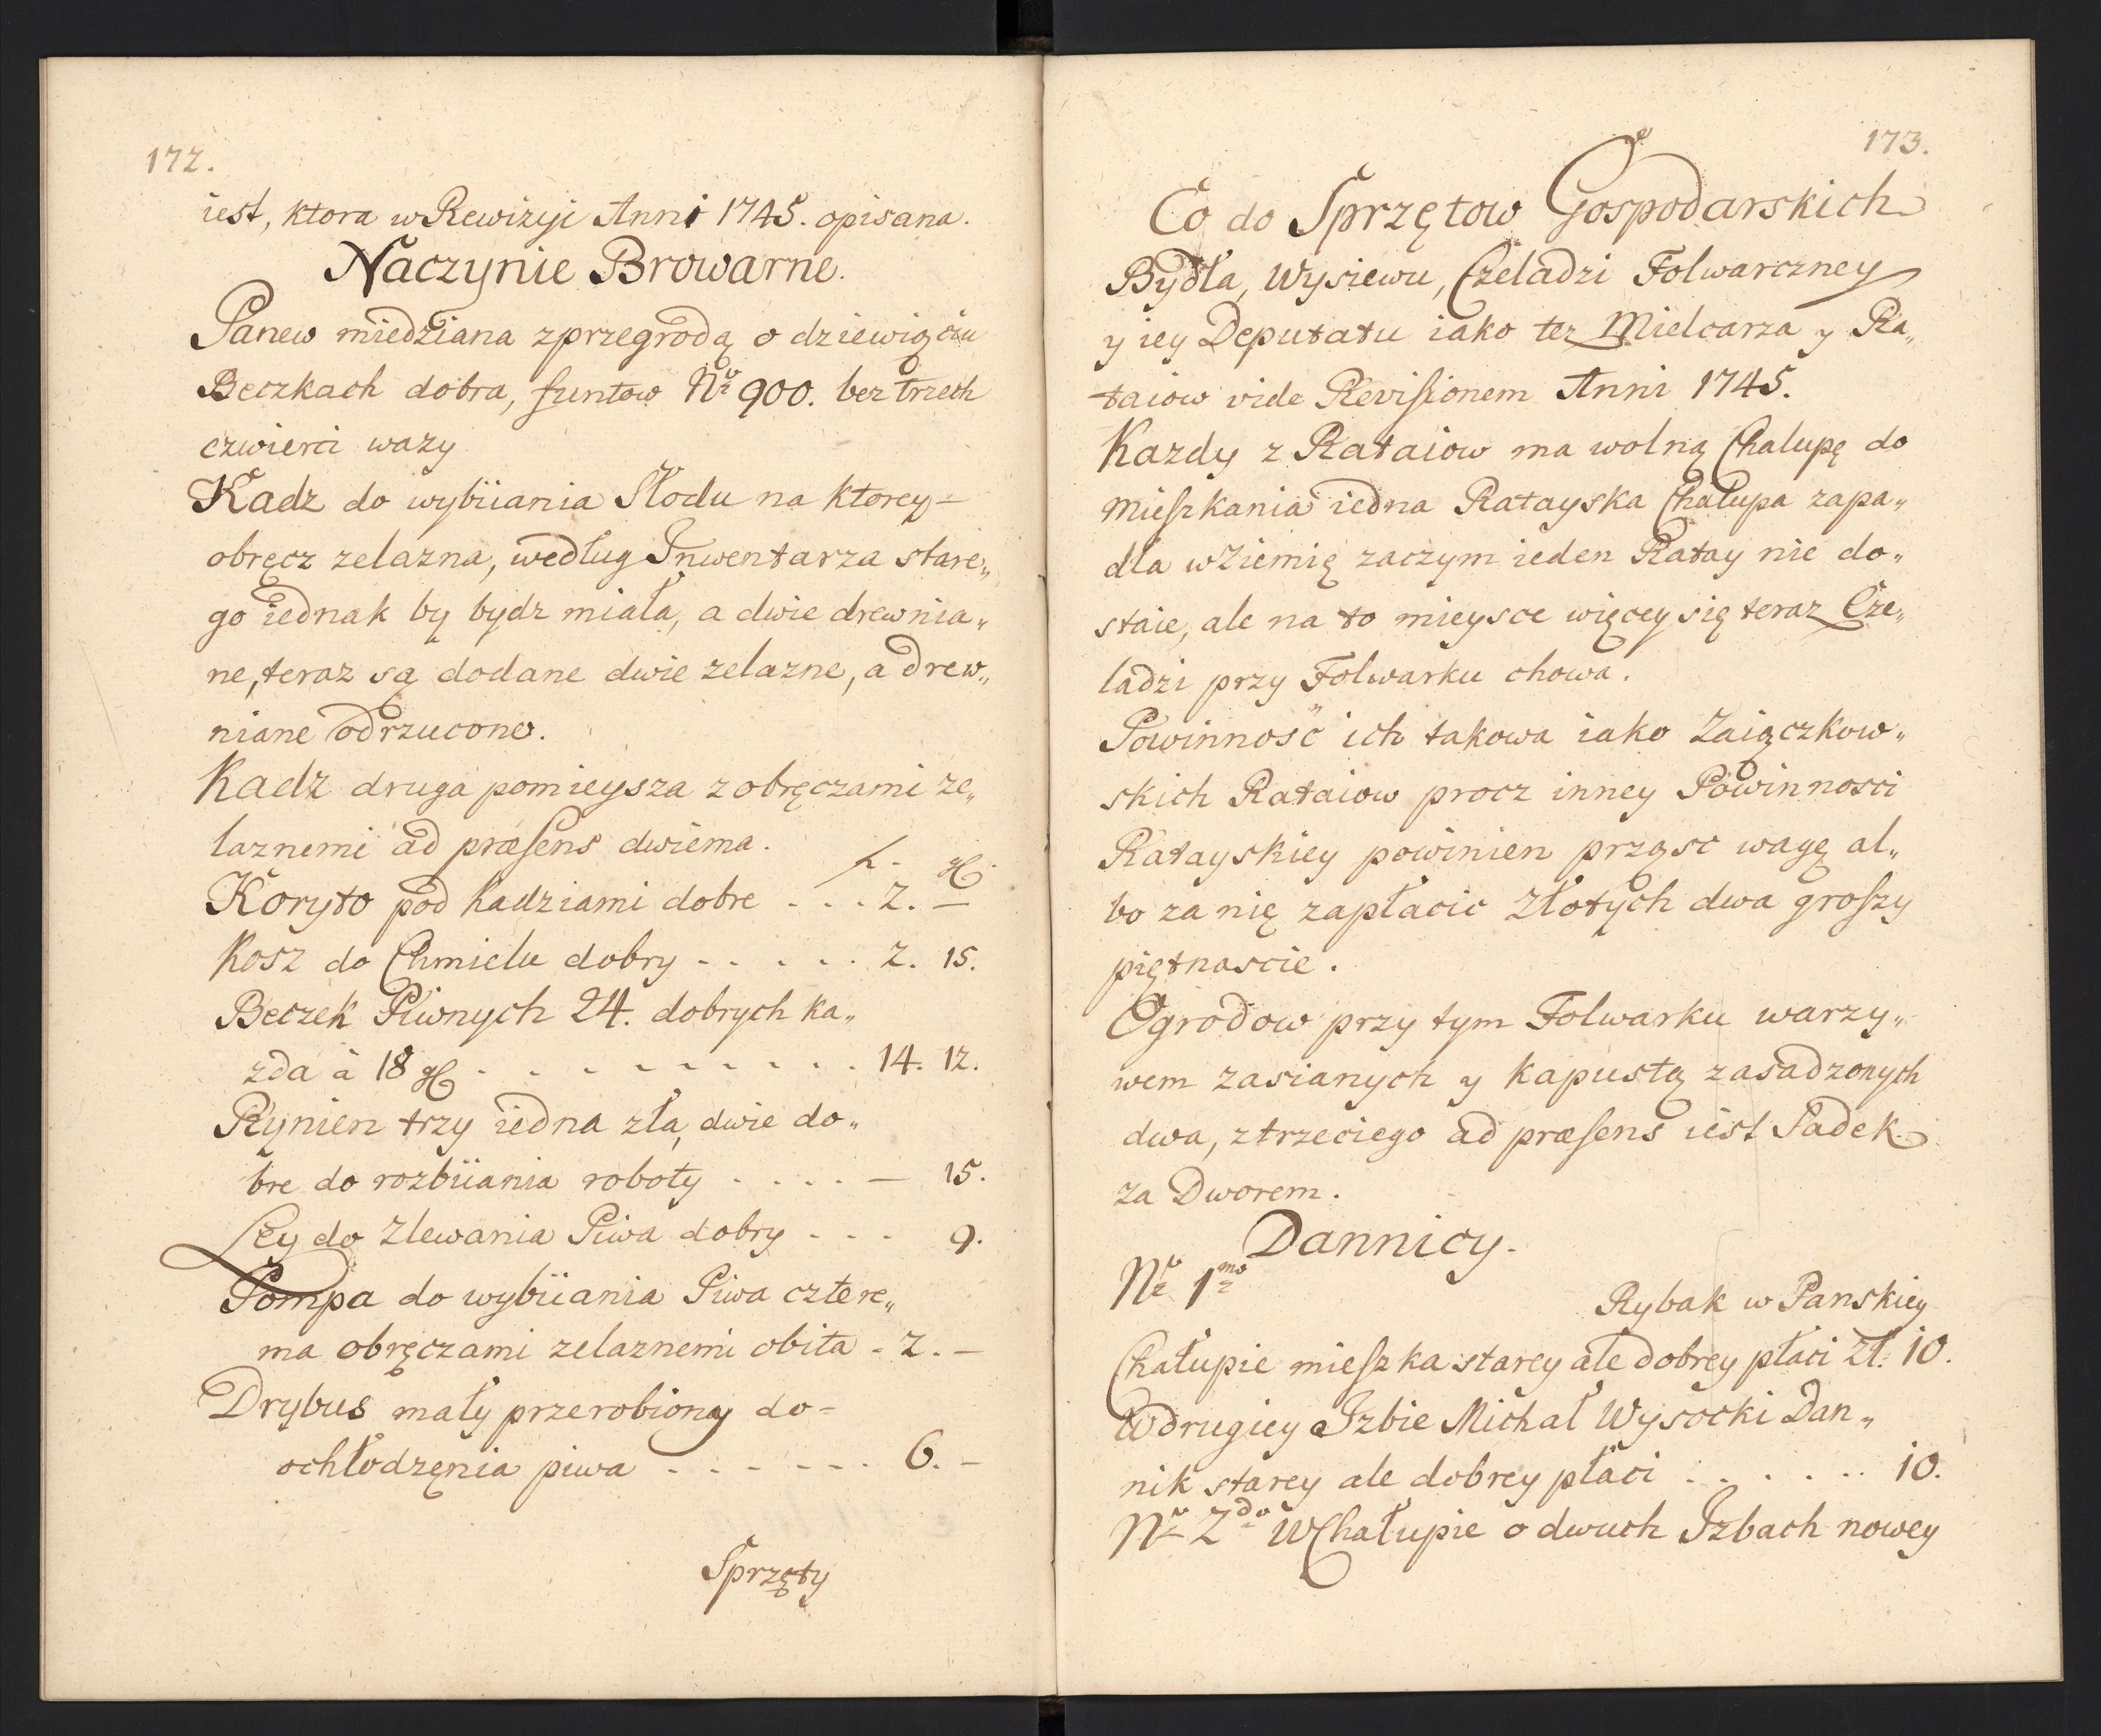 172.
iest, ktora w Rewizyi Anni 1745. opisana.
Naczynie Browarne.
Panew miedziana z przegrodą o dziewiąciu
Beczkach dobra, funtow No 900. bez trzech
czwierci wazy
Kadz do wybiiania Słodu na ktorey=
obręcz zelazna, według Inwentarza stare„
go iednak by bydz miała, a dwie drewnia„
ne, teraz są dodane dwie zelazne, a drew„
niane odrzucone.
Kadz druga pomieysza z obręczami ze„
laznemi ad præsens dwiema.
f. gl.
Koryto pod Kadziami dobre . . . 2. —
Kosz do Chmielu dobry - - - - - 2. 15.
Beczek Piwnych 24. dobrych ka„
zda à 18 gl - - - - - - - - 14. 12.
Rynien trzy iedna zła, dwie do„
bre do rozbiiania roboty . . . . — 15.
Ley do Zlewania Piwa dobry . - - 9.
Pompa do wybiiania Piwa cztere„
ma obręczami zelaznemi obita - 2. —
Drybus mały przerobiony do=
ochłodzęnia piwa - - - - - - 6. —
Sprzęty
173.
Co do Sprzętow Gospodarskich
Bydła, Wysiewu, Czeladzi Folwarczney
y iey Deputatu iako tez Mielcarza y Ra„
taiow vide Revisionem Anni 1745.
Kazdy z Rataiow ma wolną Chalupę do
Mieszkania iedna Ratayska Chałupa zapa„
dła w Ziemię zaczym ieden Ratay nie do„
staie, ale na to mieysce więcey się teraz Cze„
ladzi przy Folwarku chowa.
Powinność ich takowa iako Zaiączkow„
skich Rataiow procz inney Powinnosci
Ratayskiey powinien prząsc wagę al„
bo za nię zapłacic Złotych dwa groszy
piętnascie.
Ogrodow przy tym Folwarku warzy„
wem zasianych y kapustą zasadzonych
dwa, z trzeciego ad præsens iest Sadek
za Dworem.
Dannicy.
No 1mo
Rybak w Panskiey
Chałupie mieszka starey ale dobrey płaci Zł. 10.
W drugiey Izbie Michał Wysocki Dan„
nik starey ale dobrey płaci . . . . . . 10.
No 2do W Chałupie o dwuch Izbach nowey